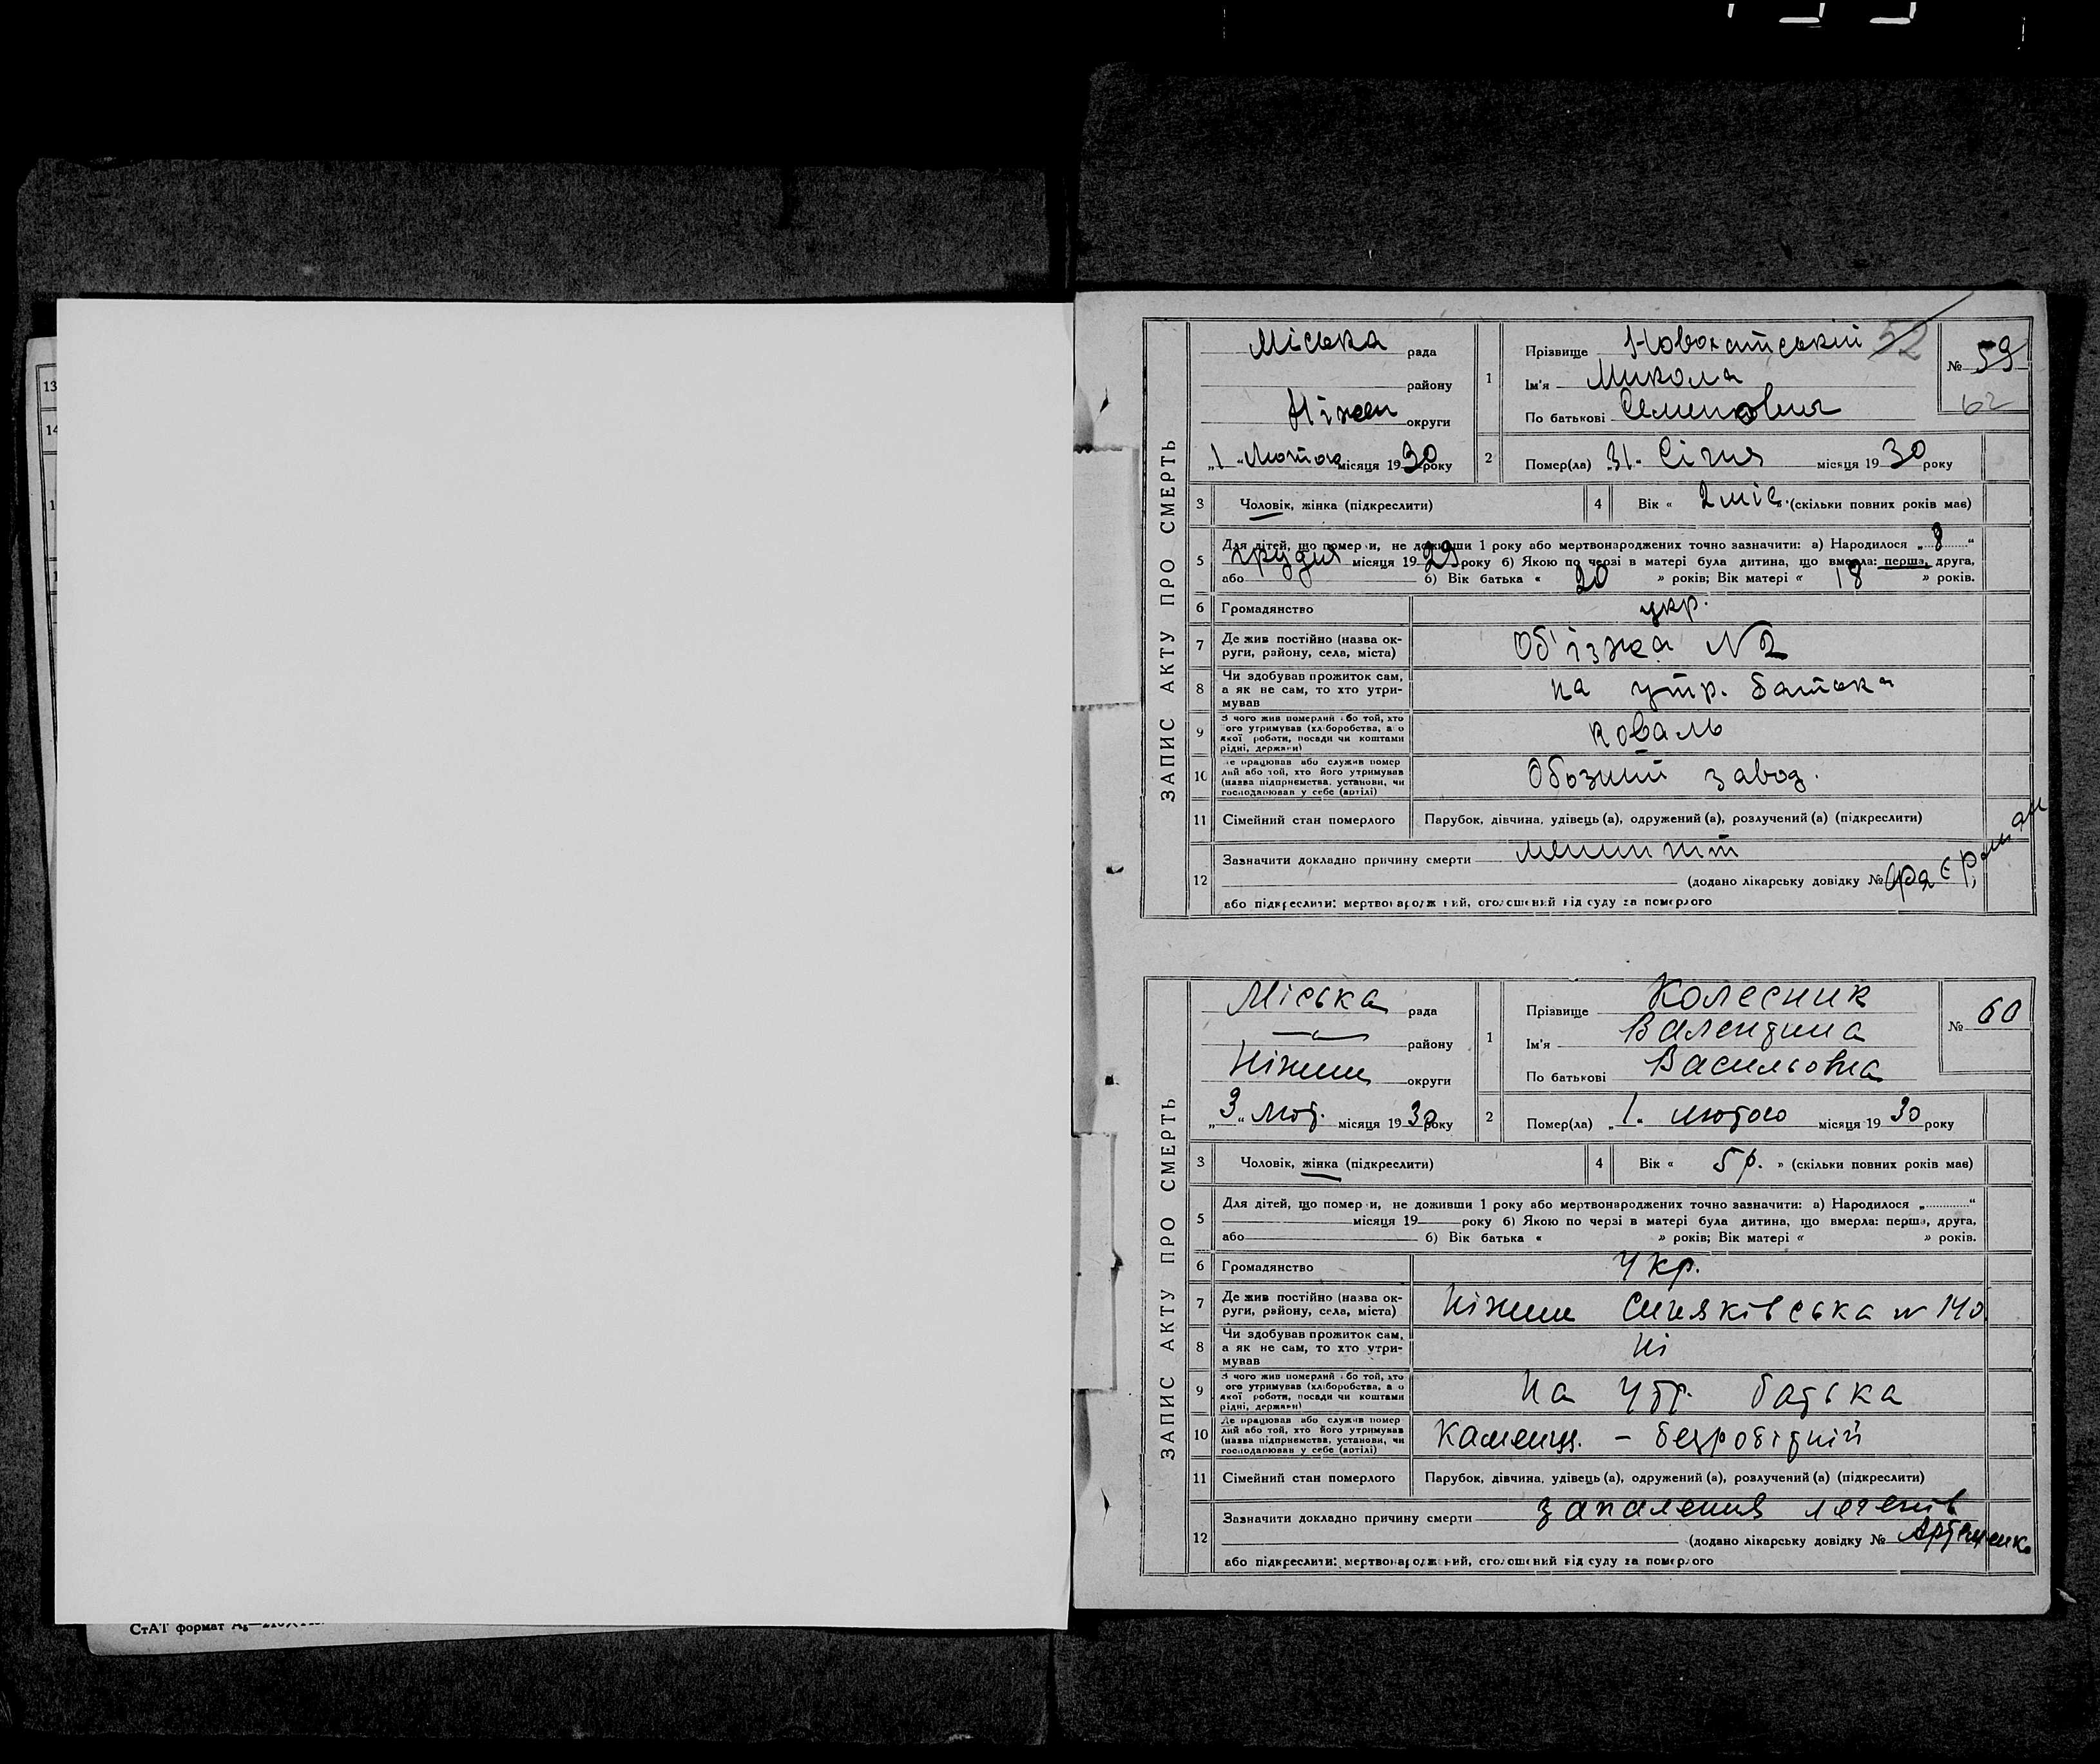 13
14
СтАТ формат
ЗАПИС АКТУ ПРО СМЕРТЬ
Міська рада
району
Ніжен округи
„1“ Лютого місяця 1930 року
1 Прізвище Новохатський 52
Ім'я Микола
По батькові Семенович
№ 59
62
2 Помер(ла) „31“ Січня місяця 1930 року
3 Чоловік, жінка (підкреслити)
4 Вік « 2 міс. (скільки повних років має)
5 Для дітей, що померли, не доживши 1 року або мертвонароджених точно зазначити: а) Народилося „8“
грудня місяця 1929 року б) Якою по черзі в матері була дитина, що вмерла: перша, друга,
або б) Вік батька « 20 » років; Вік матері « 18 » років.
6 Громадянство укр.
7 Де жив постійно (назва округи, району, села, міста) Об'їзжа N 2
8 Чи здобував прожиток сам, а як не сам, то хто утримував на утр. батька
9 З чого жив померлий або той, хто ого утримував (хліборобства, або якої роботи, посади чи коштами рідні, держави) коваль
10 Де працював або служив помер лий або той, хто його утримував (назва підприємства, установи, чи господарював у себе (артілі) Обозний завод.
11 Сімейний стан померлого Парубок, дівчина, удівець (а), одружений (а), розлучений (а) (підкреслити)
12 Зазначити докладно причину смерти менингит
(додано лікарську довідку №
або підкреслити: мертвонароджений, оголошений від суду за померлого
ЗАПИС АКТУ ПРО СМЕРТЬ
Міська рада
району
Ніжин округи
„3“ Лют. місяця 1930 року
1 Прізвище Колесник
Ім'я Валентина
По батькові Васильовна
№ 60
2 Помер(ла) „1“ лютого місяця 1930 року
3 Чоловік, жінка (підкреслити)
4 Вік « 5 р. » (скільки повних років має)
5 Для дітей, що померли, не доживши 1 року або мертвонароджених точно зазначити: а) Народилося „ “
місяця 19 року б) Якою по черзі в матері була дитина, що вмерла: перша, друга,
або б) Вік батька « » років; Вік матері « » років.
6 Громадянство Укр.
7 Де жив постійно (назва округи, району, села, міста) Ніжин Синяківська N 140
8 Чи здобував прожиток сам, а як не сам, то хто утримував Ні
9 З чого жив померлий або той, хто ого утримував (хліборобства, або якої роботи, посади чи коштами рідні, держави) На Утр. батька
10 Де працював або служив помер лий або той, хто його утримував (назва підприємства, установи, чи господарював у себе (артілі) Каменщ. – безробітній
11 Сімейний стан померлого Парубок, дівчина, удівець (а), одружений (а), розлучений (а) (підкреслити)
12 Зазначити докладно причину смерти запалення легенів
(додано лікарську довідку № Артеменко
або підкреслити: мертвонароджений, оголошений від суду за померлого